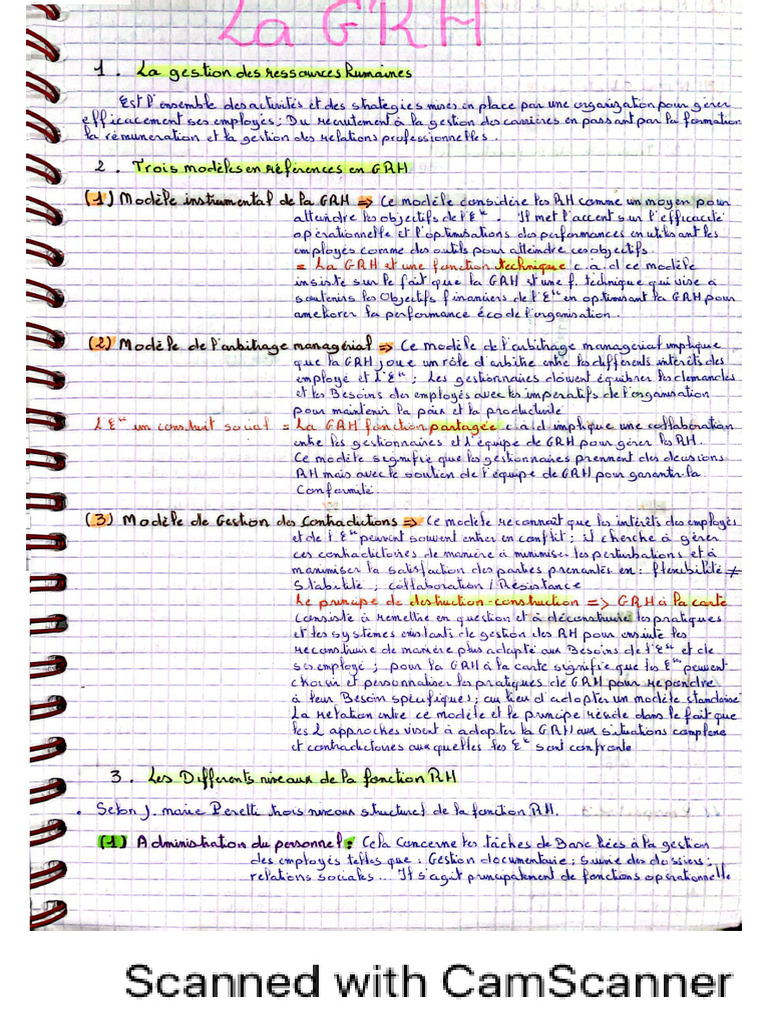 La GRH
1. La gestion des ressources humaines
Est l'ensemble des activités et des strategies mises en place par une organization pour gérer
efficacement ses employés; Du recrutement à la gestion des carrières en passant par la formation
la rémuneration et la gestion des relations professionnelles.
2. Trois modèles en références en GRH
(1) Modèle instrumental de la GRH => Ce modèle considère les RH comme un moyen pour
atteindre les objectifs de l'Eˢᵉ. Il met l'accent sur l'efficacité
opérationnelle et l'optimisations des performances en utilisant les
employés comme des outils pour atteindre ces objectifs.
= La GRH et une fonction technique c.à.d ce modèle
insiste sur le fait que la GRH et une f. technique qui vise à
soutenir les Objectifs financiers de l'Eˢᵉ en optimisant la GRH pour
ameliorer la performance éco de l'organisation.
(2) Modèle de l'arbitrage managérial => Ce modèle de l'arbitrage managérial implique
que la GRH joue un rôle d'arbitre entre les différents intérêts des
employé et l'Eˢᵉ; Les gestionnaires doivent équilibrer les demandes
et les Besoins des employés avec les impératifs de l'organisation
pour maintenir la paix et la productivité
L'Eˢᵉ un construit social = La GRH fonction partagée c.à.d implique une collaboration
entre les gestionnaires et l'équipe de GRH pour gérer les RH.
Ce modèle signifie que les gestionnaires prennent des decisions
RH mais avec le soutien de l'équipe de GRH pour garantir la
Conformité.
(3) Modèle de Gestion des Contradictions => Ce modèle reconnait que les intérêts des employés
et de l'Eˢᵉ peuvent souvent entrer en conflit; il cherche à gérer
ces contradictoires de manière à minimiser les perturbations et à
maximiser la satisfaction des parties prenantes en: flexibilité ≠
Stabilité; collaboration / Résistance
Le principe de destruction-construction => GRH à la carte
Consiste à remettre en question et à déconstruire les pratiques
et les systèmes existants de gestion des RH pour ensuite les
reconstruire de manière plus adapté aux Besoins de l'Eˢᵉ et de
ses employé; pour la GRH à la carte signifie que les Eˢᵉ peuvent
choisir et personnaliser les pratiques de GRH pour repondre
à leur Besoin spécifiques; au lieu d'adopter un modèle standarisé
La relation entre ce modèle et le principe réside dans le fait que
les 2 approches visent à adapter la GRH aux situations complexe
et contradictoires auxquelles les Eˢᵉ sont confronte
3. Les Differents niveaux de la fonction RH
. Selon J. marie Peretti trois niveaux structure de la fonction RH.
(1) Administration du personnel: Cela Concerne les tâches de Base liées à la gestion
des employés telles que: Gestion documentaire; suivie des dossiers;
relations sociales... Il s'agit principalement de fonctions opérationnelle
Scanned with CamScanner